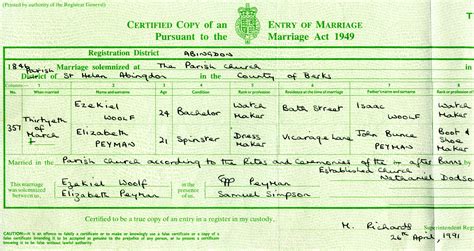 (Printed by authority of the Registrar General)
CERTIFIED COPY of an ENTRY OF MARRIAGE
Pursuant to the Marriage Act 1949
Registration District ABINGDON
Marriage solemnized at The Parish Church
Parish
District of St Helen Abingdon in the County of Berks
Columns 1 2 3 4 5 6 7 8
No. When married Name and surname Age Condition Rank or profession Residence at the time of marriage Father's name and surname Rank or profession of father
357 Thirtyeth of March Ezekiel WOOLF 24 Bachelor Watch Maker Bath Street Isaac WOOLF Watch Maker
Elizabeth PEYMAN 21 Spinster Dress Maker Vicarage Lane John Bunce PEYMAN Boot & Shoe Maker
Married in the Parish Church according to the Rites and Ceremonies of the Established Church or after Banns by
Nathaniel Dodson
This marriage was solemnized between us, Ezekiel Woolf Elizabeth Peyman in the presence of us, Peyman Samuel Simpson
Certified to be a true copy of an entry in a register in my custody.
CAUTION:—It is an offence to falsify a certificate or to make or knowingly use a false certificate or a copy of a
false certificate intending it to be accepted as genuine to the prejudice of any person, or to possess a certificate
knowing it to be false without lawful authority.
M. Richards Superintendent
26th April, 1991